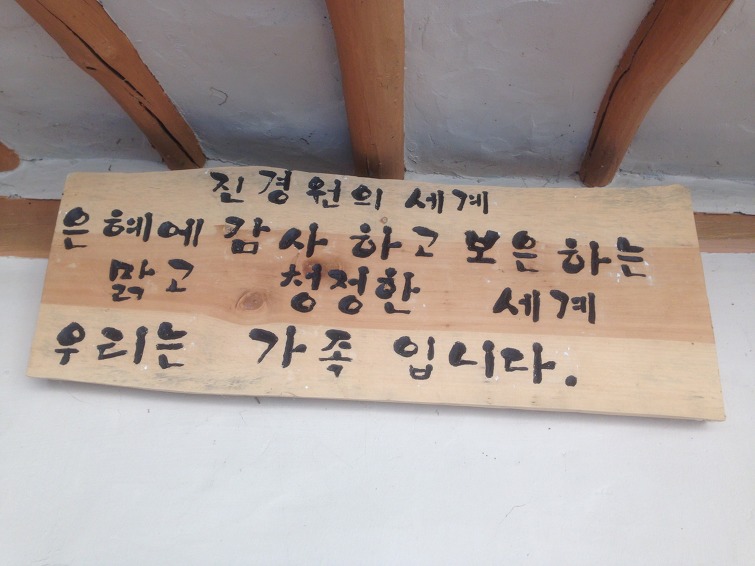 진경원의 세계
은혜에 감사 하고 보은하는
맑고 청정한 세계
우리는 가족 입니다.